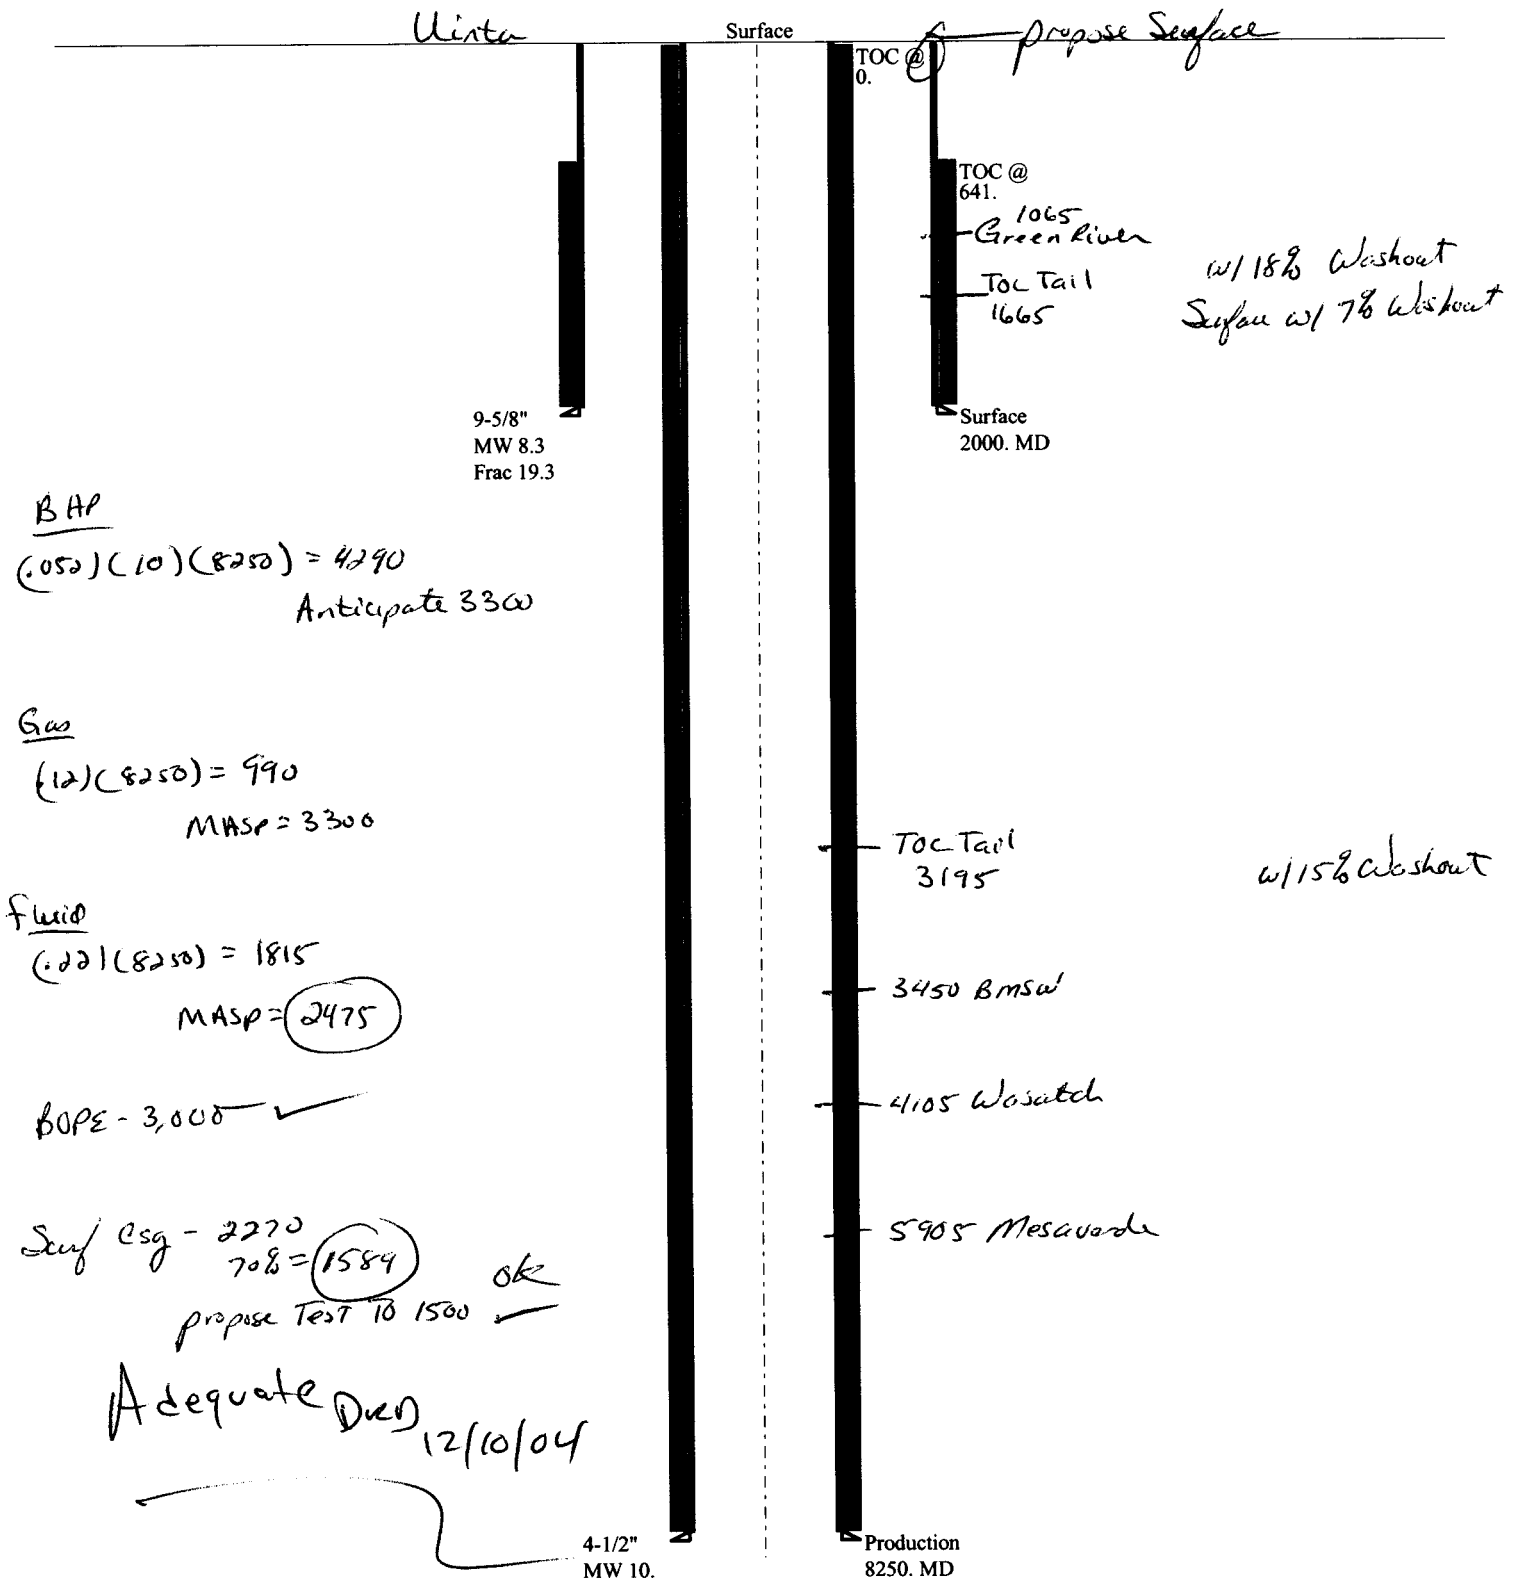 Uinta
Surface
propose Surface
TOC @
0.
TOC @
641.
1065
Green River
TOC Tail
1665
w/ 18% Washout
Surface w/ 7% Washout
9-5/8"
MW 8.3
Frac 19.3
Surface
2000. MD
BHP
(.052)(10)(8250) = 4290
Anticipate 3300
Gas
(.12)(8250) = 990
MASP = 3300
fluid
(.22)(8250) = 1815
MASP = 2475
BOPE - 3,000
Surf Csg - 2270
70% = 1589
propose Test To 1500 ok
Adequate DKD
12/10/04
TOC Tail
3195
w/ 15% Washout
3450 BMSW
4105 Wasatch
5905 Mesaverde
4-1/2"
MW 10.
Production
8250. MD